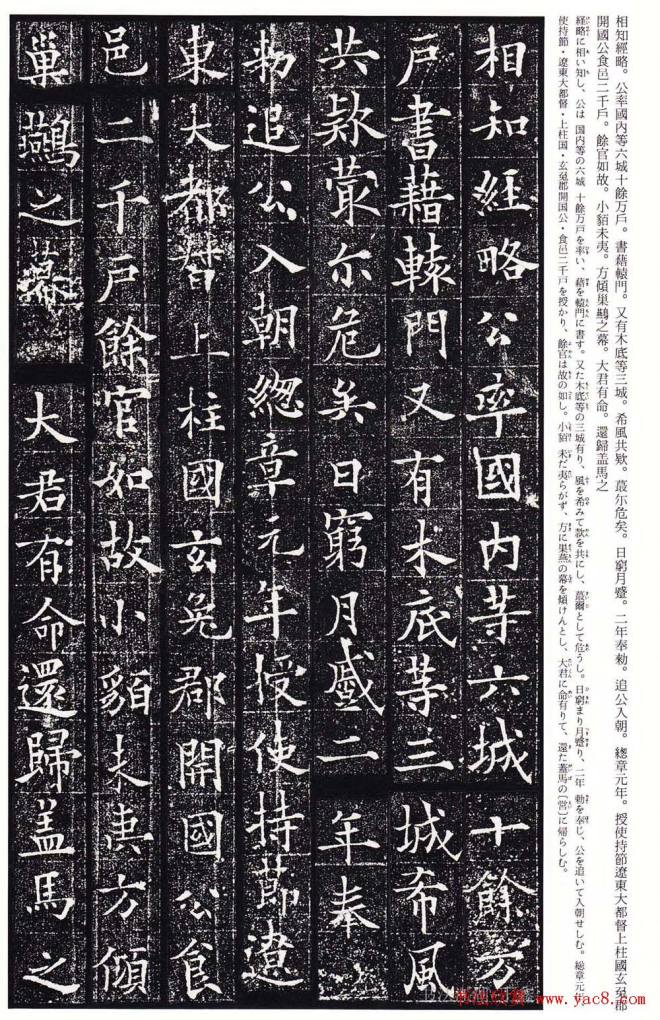 相知經略。公率國内等六城十餘万戸。書藉轅門。又有木底等三城。希風共欵。蕞尓危矣。日窮月蹙。二年奉勅。追公入朝。總章元年。授使持節遼東大都督上柱國玄菟郡
開國公食邑二千戸。餘官如故。小貊未夷。方傾巢鷰之幕。大君有命。還歸盖馬之
経略に相い知し、公は 国内等の六城 十餘万戸を率い、藉を轅門に書す。又た木底等の三城有り、風を希みて款を共にし、蕞爾として危うし。日窮まり月蹙り、二年 勅を奉じ、公を追いて入朝せしむ。総章元年
使持節・遼東大都督・上柱国・玄菟郡開国公・食邑二千戸を授かり、餘官は故の如し。小貊 未だ夷らがず、方に巣燕の幕を傾けんとし、大君に命有りて、還た蓋馬の〔営〕に帰らしむ。
相知經略公率國内等六城十餘万
戸書藉轅門又有木底等三城希風
共欵蕞尓危矣日窮月蹙二年奉
勅追公入朝總章元年授使持節遼
東大都督上柱國玄菟郡開國公食
邑二千戸餘官如故小貊未夷方傾
巢鷰之幕大君有命還歸盖馬之
www.yac8.com